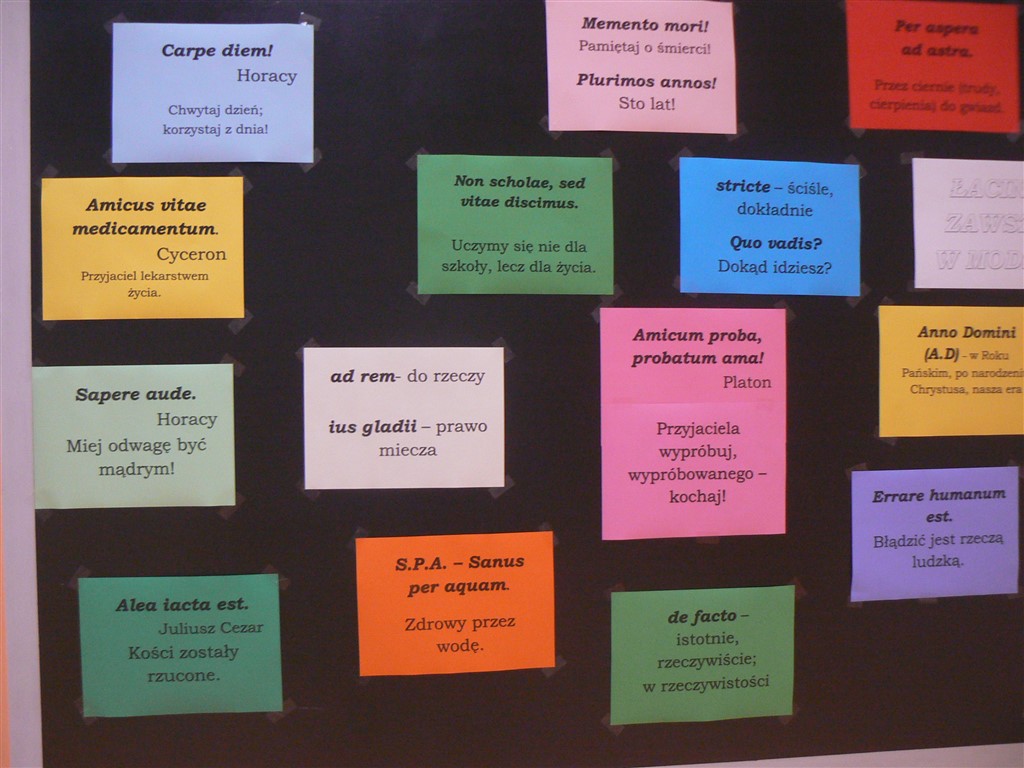 Carpe diem!
Horacy
Chwytaj dzień;
korzystaj z dnia!
Memento mori!
Pamiętaj o śmierci!
Plurimos annos!
Sto lat!
Per aspera
ad astra.
Przez ciernie (trudy,
cierpienia) do gwiazd.
Amicus vitae
medicamentum.
Cyceron
Przyjaciel lekarstwem
życia.
Non scholae, sed
vitae discimus.
Uczymy się nie dla
szkoły, lecz dla życia.
stricte – ściśle,
dokładnie
Quo vadis?
Dokąd idziesz?
ŁACIN
ZAWS
W MOD
Sapere aude.
Horacy
Miej odwagę być
mądrym!
ad rem- do rzeczy
ius gladii – prawo
miecza
Amicum proba,
probatum ama!
Platon
Przyjaciela
wypróbuj,
wypróbowanego –
kochaj!
Anno Domini
(A.D) - w Roku
Pańskim, po narodzeniu
Chrystusa, nasza era
Errare humanum
est.
Błądzić jest rzeczą
ludzką.
Alea iacta est.
Juliusz Cezar
Kości zostały
rzucone.
S.P.A. – Sanus
per aquam.
Zdrowy przez
wodę.
de facto –
istotnie,
rzeczywiście;
w rzeczywistości